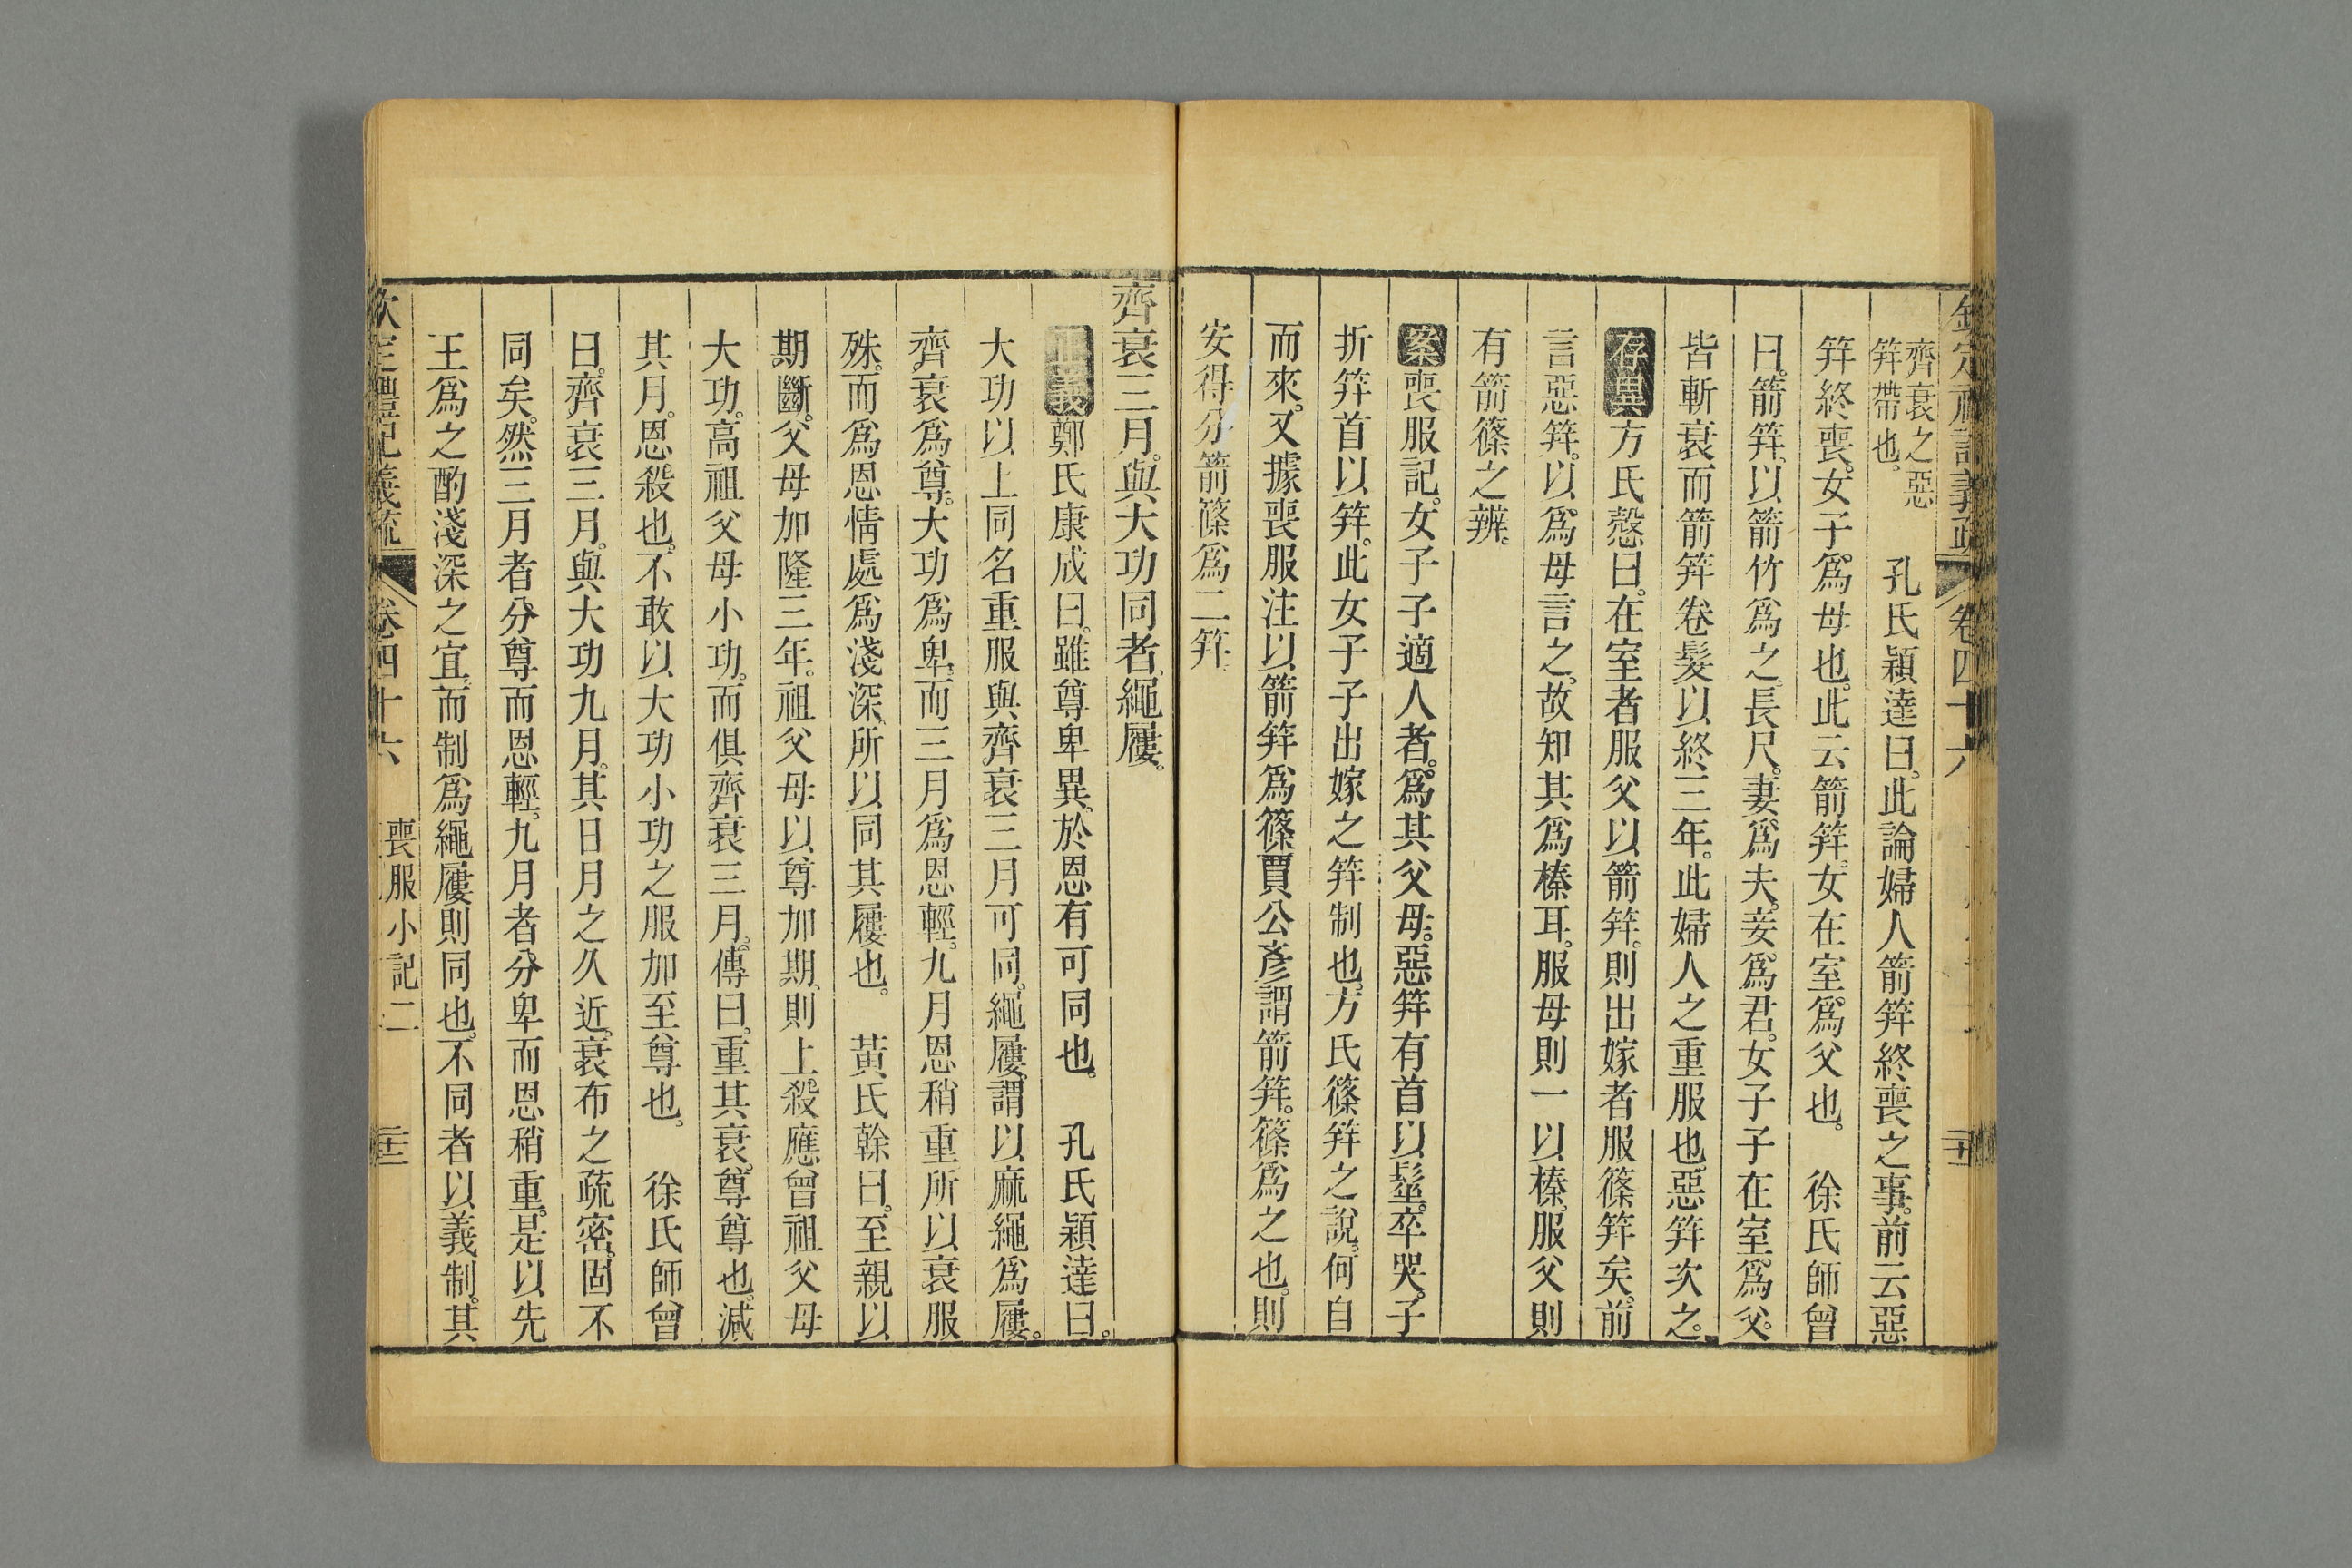 欽定禮記義疏 卷四十六
齊衰之惡
笄帶也。
孔氏穎達曰。此論婦人箭笄終喪之事。前云惡
笄終喪。女子爲母也。此云箭笄。女在室爲父也。 徐氏師曾
曰。箭笄。以箭竹爲之。長尺。妻爲夫。妾爲君。女子子在室爲父。
皆斬衰而箭笄卷髮以終三年。此婦人之重服也。惡笄次之。
存異方氏慤曰。在室者服父以箭笄。則出嫁者服篠笄矣。前
言惡笄。以爲母言之。故知其爲榛耳。服母則一以榛。服父則
有箭篠之辨。
案喪服記。女子子適人者。爲其父母。惡笄有首以髽。卒哭。子
折笄首以笄。此女子子出嫁之笄制也。方氏篠笄之說。何自
而來。又據喪服注以箭笄爲篠。賈公彥謂箭笄。篠爲之也。則
安得分箭篠爲二笄
齊衰三月。與大功同者。繩屨。
正義鄭氏康成曰。雖尊卑異。於恩有可同也。 孔氏穎達曰。
大功以上同名重服與齊衰三月可同。繩屨。謂以麻繩爲屨。
齊衰爲尊。大功爲卑。而三月爲恩輕。九月恩稍重所以衰服
殊。而爲恩情處爲淺深。所以同其屨也。 黃氏榦曰。至親以
期斷。父母加隆三年。祖父母以尊加期。則上殺應曾祖父母
大功。高祖父母小功。而俱齊衰三月。傳曰。重其衰。尊尊也。減
其月。恩殺也。不敢以大功小功之服加至尊也。 徐氏師曾
曰。齊衰三月。與大功九月。其日月之久近。衰布之疏密。固不
同矣。然三月者分尊而恩輕。九月者分卑而恩稍重。是以先
王爲之酌淺深之宜。而制爲繩屨則同也。不同者以義制。其
欽定禮記義疏 卷四十六 喪服小記二 三